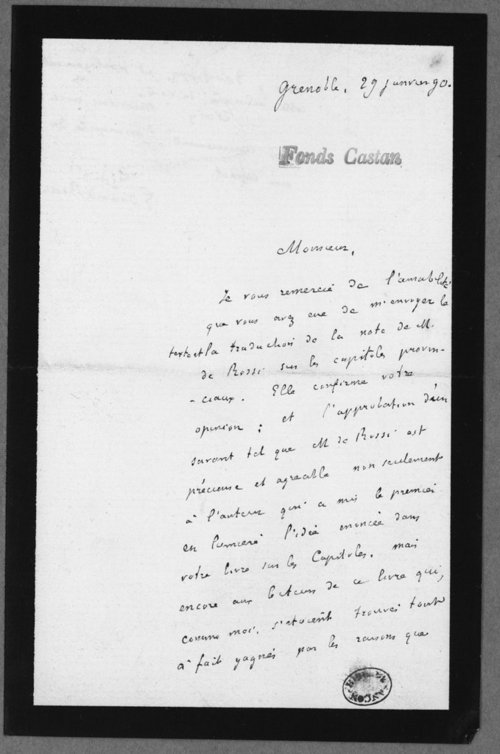 Grenoble, 29 janvier 90.
Fonds Castan
Monsieur,
Je vous remercie de l'amabilité
que vous avez eue de m'envoyer le
texte et la traduction de la note de M.
de Rossi sur les capitoles provin-
-ciaux. Elle confirme votre
opinion ; et l'approbation d'un
savant tel que M. de Rossi est
précieuse et agréable non seulement
à l'auteur qui a mis le premier
en lumière l'idée énoncée dans
votre livre sur les Capitoles, mais
encore aux lecteurs de ce livre qui,
comme moi, s'étaient trouvés tout
à fait gagnés par les raisons que